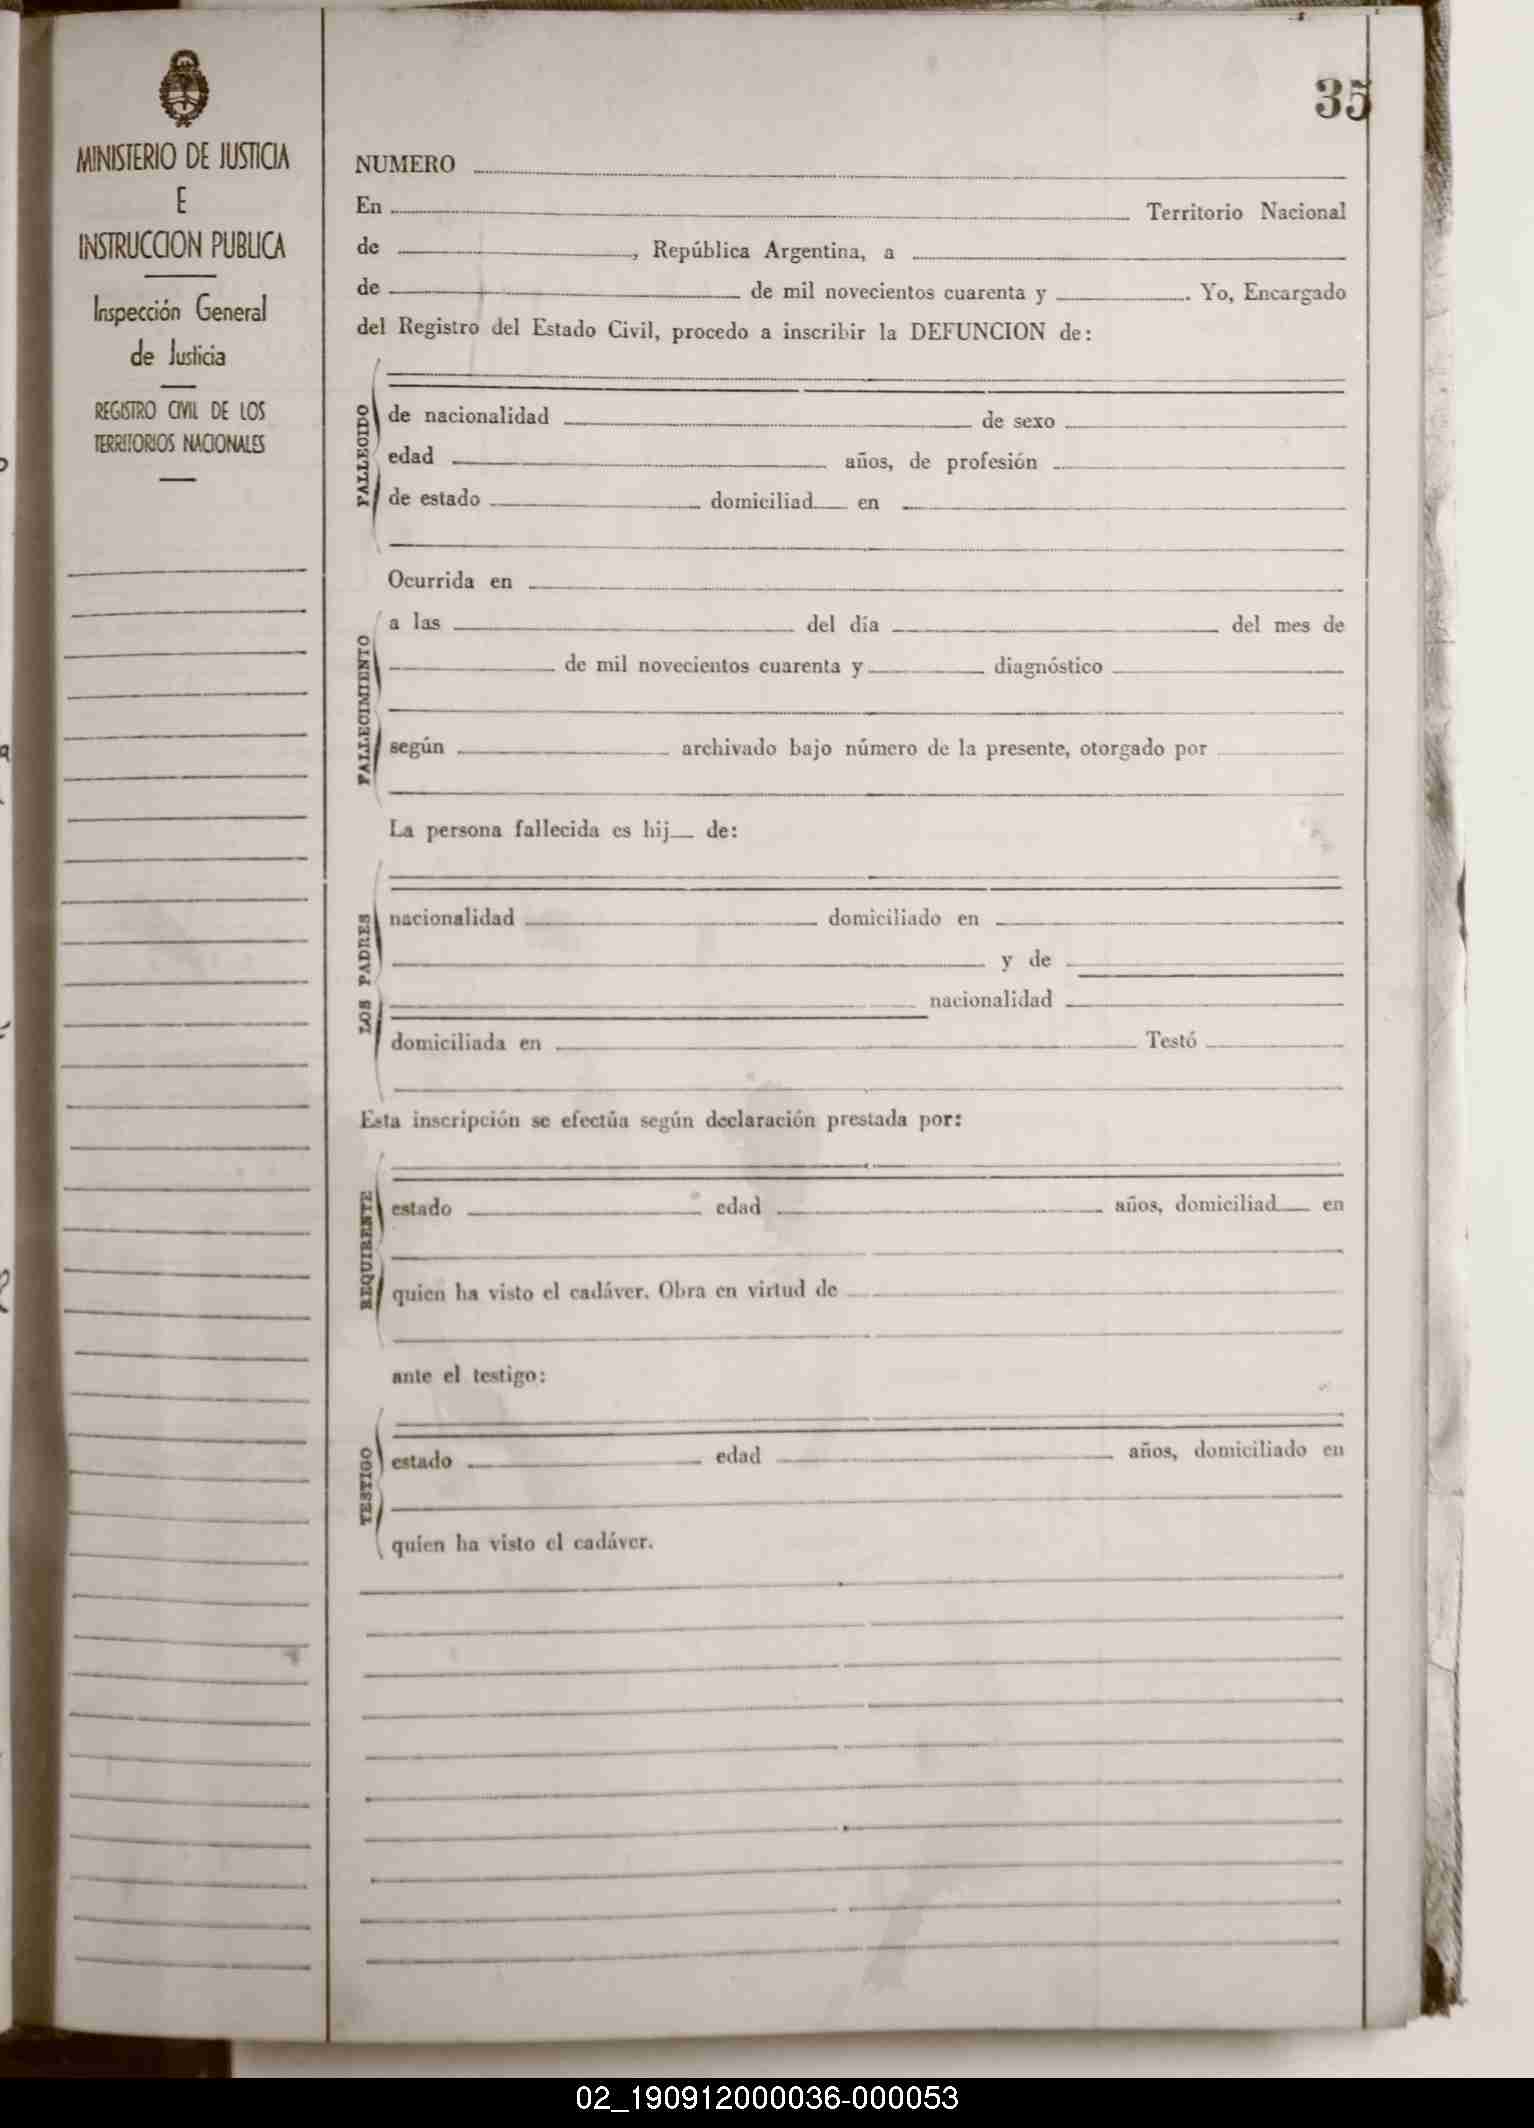 MINISTERIO DE JUSTICIA
E
INSTRUCCION PUBLICA
Inspección General
de Justicia
REGISTRO CIVIL DE LOS
TERRITORIOS NACIONALES
35
NUMERO
En Territorio Nacional
de , República Argentina, a
de de mil novecientos cuarenta y . Yo, Encargado
del Registro del Estado Civil, procedo a inscribir la DEFUNCION de:
FALLECIDO
de nacionalidad de sexo
edad años, de profesión
de estado domiciliad en
Ocurrida en
FALLECIMIENTO
a las del día del mes de
de mil novecientos cuarenta y diagnóstico
según archivado bajo número de la presente, otorgado por
La persona fallecida es hij de:
LOS PADRES
nacionalidad domiciliado en
y de
nacionalidad
domiciliada en Testó
Esta inscripción se efectúa según declaración prestada por:
REQUIRENTE
estado edad años, domiciliad en
quien ha visto el cadáver. Obra en virtud de
ante el testigo:
TESTIGO
estado edad años, domiciliado en
quien ha visto el cadáver.
02_190912000036-000053